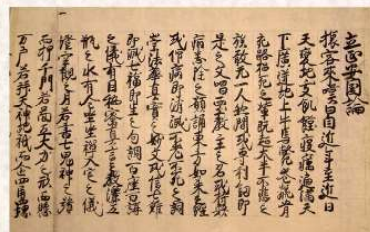 立正安国論
旅客来嘆曰自近年至近日
天変地夭飢饉疫癘遍満天
下広迸地上牛馬斃巷骸骨
充路招死之輩既超大半不悲之
族敢無一人然間或専利剣即
是之文唱西土教主之名或持衆
病悉除之願誦東方如来之経
或仰病即消滅不老不死之詞
崇法華真実之妙文或信七難
即滅七福即生之句調百座百講
之儀有因秘密真言之教灑五
瓶之水有全坐禅入定之儀
澄空観之月若書七鬼神之号
而押千門若図五大力之形而懸
万戸若拝天神地祇而企四角四堺